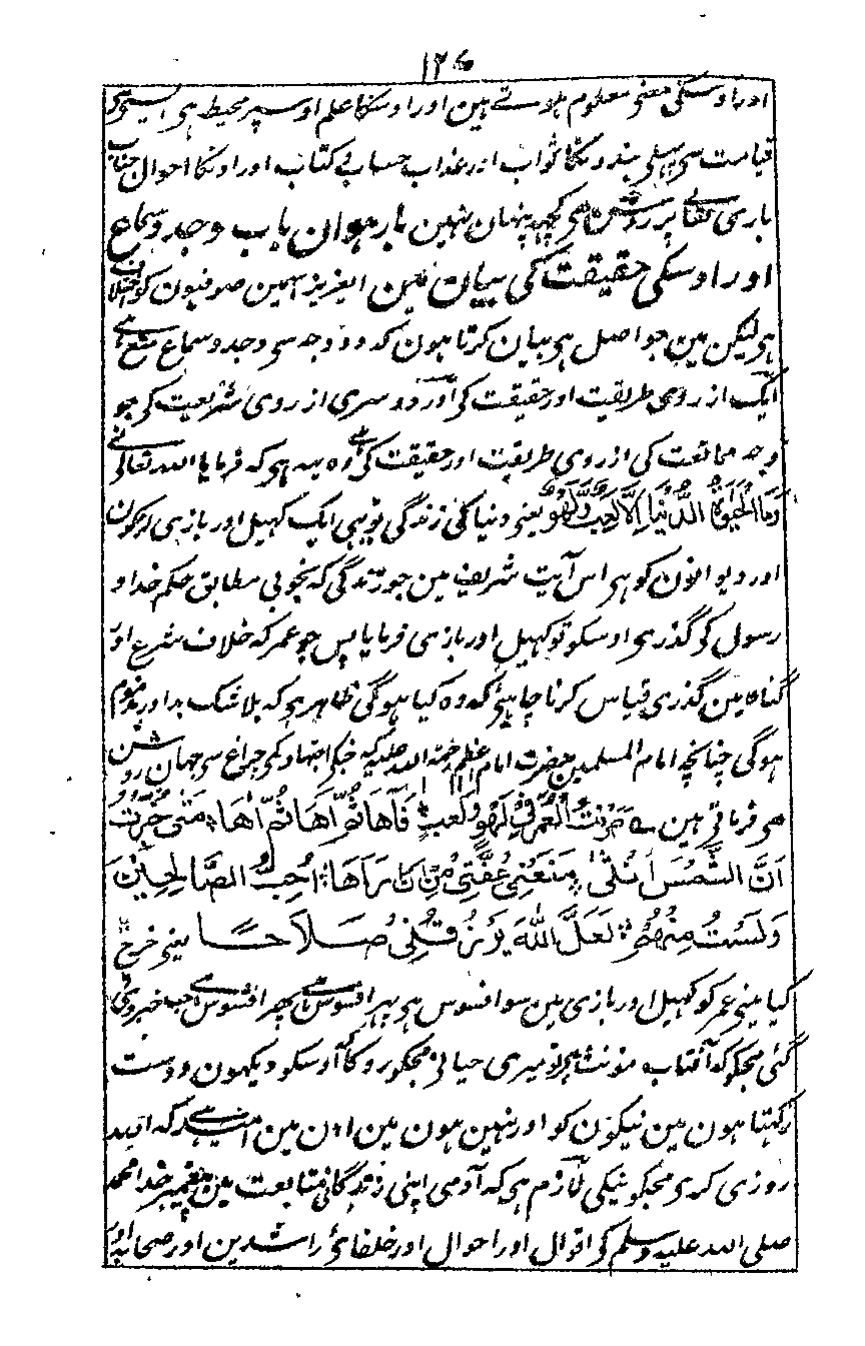 ۱۲۶
اور اوسکی معنی معلوم ہوتے ہین اور اوسکا علم اوسپر محیط ہی
قیامت سی پہلی بندونکا ثواب اور عذاب حساب کتاب اور اونکا احوال جناب
باری تعالے پر روشن ہی کچھہ پنہان نہین بارہوان باب وجد و سماع
اور اوسکی حقیقت کی بیان مین ایعزیز اسمین صوفیون کو اختلاف
ہی لیکن مین جو اصل ہی بیان کرتا ہون کہ دو وجہ سی وجد و سماع منع ہے
ایک از روی طریقت اور حقیقت کی اور دوسری از روی شریعت کی جو
وجہ ممانعت کی از روی طریقت اور حقیقت کی ہے وہ یہہ ہی کہ فرمایا اللہ تعالی نے
وَمَا الْحَیٰوۃُ الدُّنْیَا اِلَّا لَعِبٌ وَّلَهْوٌ یعنی دنیا کی زندگی یوہی ایک کھیل اور بازی لڑکون
اور دیوانون کو ہی اس آیت شریف مین جو زندگی کہ بخوبی مطابق حکم خدا و
رسول کی گذری اوسکو تو کھیل اور بازی فرمایا پس جو عمر کہ خلاف شرع اور
گناہ مین گذری قیاس کرنا چاہیئے کہ وہ کیا ہوگی ظاہر ہی کہ بلا شک بد اور مذموم
ہوگی چنانچہ امام المسلمین حضرت امام اعظم رحمۃ اللہ علیہ کہ جنکی اجتہاد کی چراغ سی جہان روشن
ہی فرماتی ہین صَرَفْتُ الْعُمُرَ فِیْ لَهْوٍ وَلَعِبٍ فَآهَا ثُمَّ آهَا ثُمَّ آهَا مَتٰی خُبِّرْتُ
اَنَّ الشَّمْسَ اُنْثٰی مَنَعَتْنِیْ عِفَّتِیْ مِنْ اَنْ اَرَاهَا اُحِبُّ الصَّالِحِیْنَ
وَلَسْتُ مِنْهُمْ لَعَلَّ اللّٰهَ یَرْزُقُنِیْ صَلَاحًا یعنی خرچ
کیا مینی عمر کو کھیل اور بازی مین سو افسوس ہی پھر افسوس ہے پھر افسوس ہے جب خبر دی
گئی مجکو کہ آفتاب مونث ہی تو میری حیا نی مجکو روکا کہ اوسکو دیکھون دوست
رکھتا ہون مین نیکون کو اور نہین ہون مین اون مین امید ہے کہ اللہ
روزی کری مجکو نیکی لازم ہی کہ آدمی اپنی زندگانی متابعت مین پیغمبر خدا محمد
صلی اللہ علیہ وسلم کی اقوال اور احوال اور خلفائ راشدین اور صحابہ اور